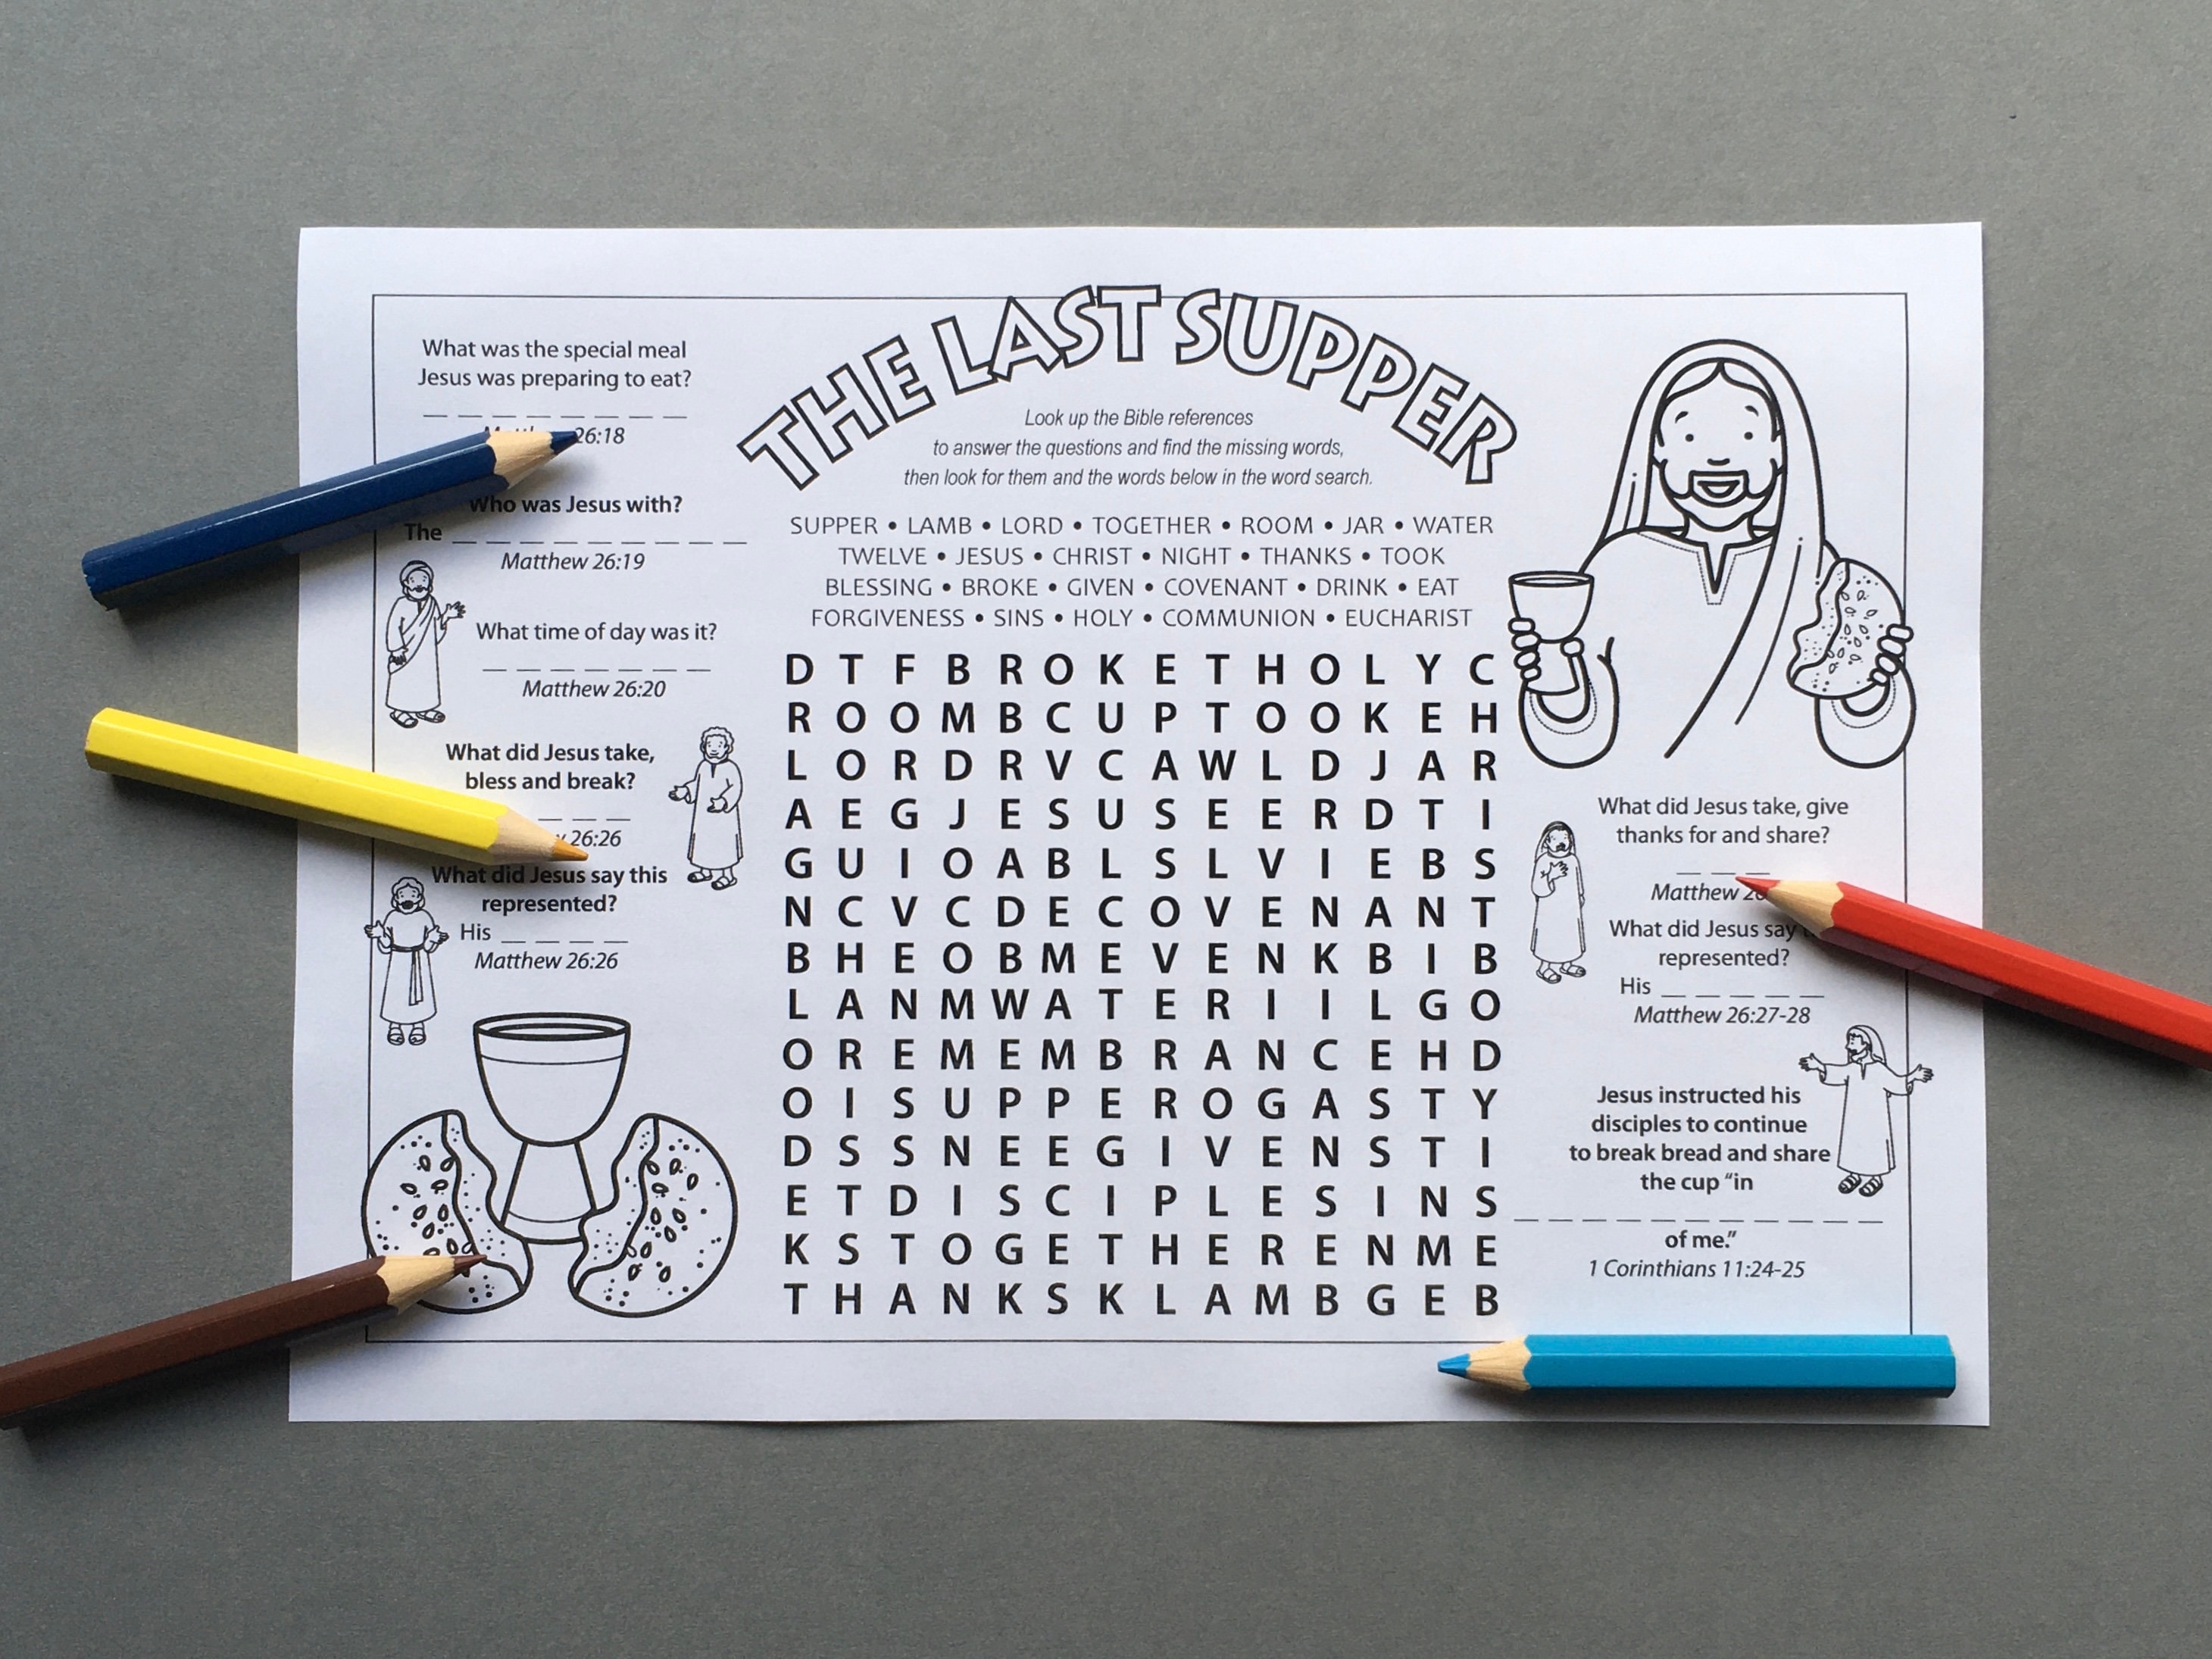 THE LAST SUPPER
Look up the Bible references
to answer the questions and find the missing words,
then look for them and the words below in the word search.
SUPPER • LAMB • LORD • TOGETHER • ROOM • JAR • WATER
TWELVE • JESUS • CHRIST • NIGHT • THANKS • TOOK
BLESSING • BROKE • GIVEN • COVENANT • DRINK • EAT
FORGIVENESS • SINS • HOLY • COMMUNION • EUCHARIST
What was the special meal
Jesus was preparing to eat?
_ _ _ _ _ _ _ _
26:18
Who was Jesus with?
The _ _ _ _ _ _ _ _ _
Matthew 26:19
What time of day was it?
_ _ _ _ _ _ _
Matthew 26:20
What did Jesus take,
bless and break?
_ _ _
26:26
What did Jesus say this
represented?
His _ _ _ _
Matthew 26:26
D T F B R O K E T H O L Y C
R O O M B C U P T O O K E H
L O R D R V C A W L D J A R
A E G J E S U S E E R D T I
G U I O A B L S L V I E B S
N C V C D E C O V E N A N T
B H E O B M E V E N K B I B
L A N M W A T E R I I L G O
O R E M E M B R A N C E H D
O I S U P P E R O G A S T Y
D S S N E E G I V E N S T I
E T D I S C I P L E S I N S
K S T O G E T H E R E N M E
T H A N K S K L A M B G E B
What did Jesus take, give
thanks for and share?
_ _ _
Matthew
What did Jesus say
represented?
His _ _ _ _ _
Matthew 26:27-28
Jesus instructed his
disciples to continue
to break bread and share
the cup “in
_ _ _ _ _ _ _ _ _ _ _
of me.”
1 Corinthians 11:24-25